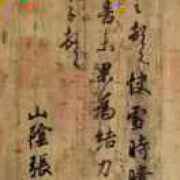 之頓首快雪時晴
善未果為結力
之頓首
山陰張